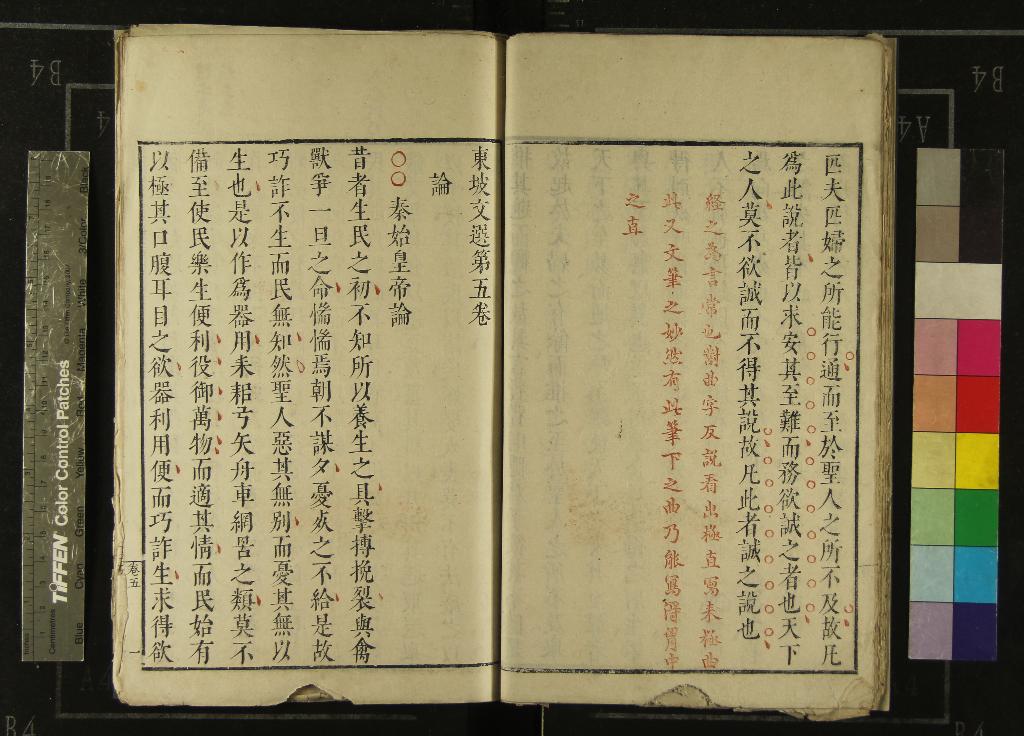 匹夫匹婦之所能行通而至於聖人之所不及故凡
為此說者皆以求安其至難而務欲誠之者也天下
之人莫不欲誠而不得其說故凡此者誠之說也
經之為言常也對曲字反說看出極直寫來極曲
此又文筆之妙然有此筆下之曲乃能寫得胃中
之直
東坡文選第五卷
論
○○秦始皇帝論
昔者生民之初不知所以養生之具擊搏挽裂與禽
獸爭一旦之命惴惴焉朝不謀夕憂死之不給是故
巧詐不生而民無知然聖人惡其無別而憂其無以
生也是以作爲器用耒耜弓矢舟車網罟之類莫不
備至使民樂生便利役御萬物而適其情而民始有
以極其口腹耳目之欲器利用便而巧詐生求得欲
卷五
一
TIFFEN Color Control Patches
Centimetres
Inches
Blue
Cyan
Green
Yellow
Red
Magenta
White
3/Color
Black
B4
B4
A4
B4